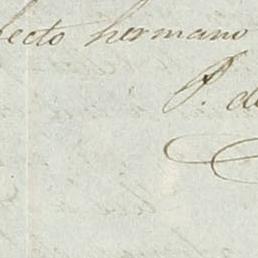 fecto hermano
P. d